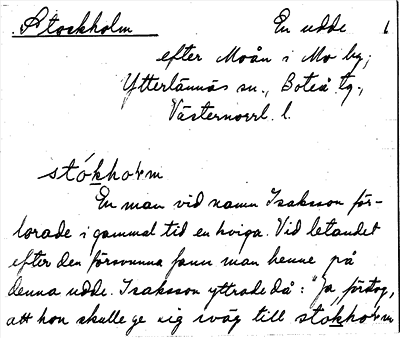 Stockholm En udde 1
efter Moån i Mo by,
Ytterlännäs sn., Boteå tg.,
Västernorrl. l.
stókhoʼɩm
En man vid namn Isaksson för-
lorade i gammal tid en kviga. Vid letandet
efter den försvunna fann man henne på
denna udde. Isaksson yttrade då: "Ja förstog,
att hon skulle ge sig iväg till stókhoʼɩm